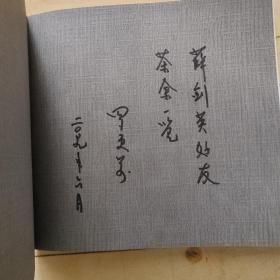 薛剑英好友
茶余一览
罗更前
二〇〇九年六月